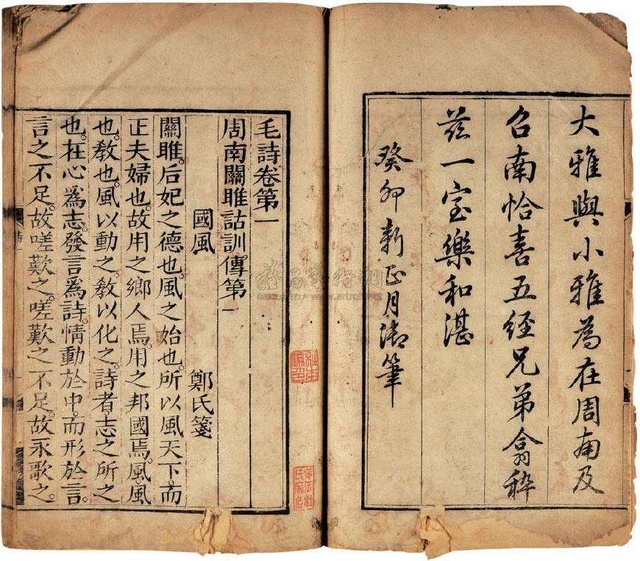 大雅與小雅為在周南及
召南恰喜五經兄弟翕稡
茲一室樂和湛
癸卯新正月御筆
毛詩卷第一
周南關雎詁訓傳第一
國風 鄭氏箋
關雎。后妃之德也。風之始也。所以風天下而
正夫婦也。故用之鄉人焉。用之邦國焉。風風
也。教也。風以動之。教以化之。詩者志之所之
也。在心爲志。發言爲詩。情動於中。而形於言。
言之不足。故嗟歎之。嗟歎之不足。故永歌之。